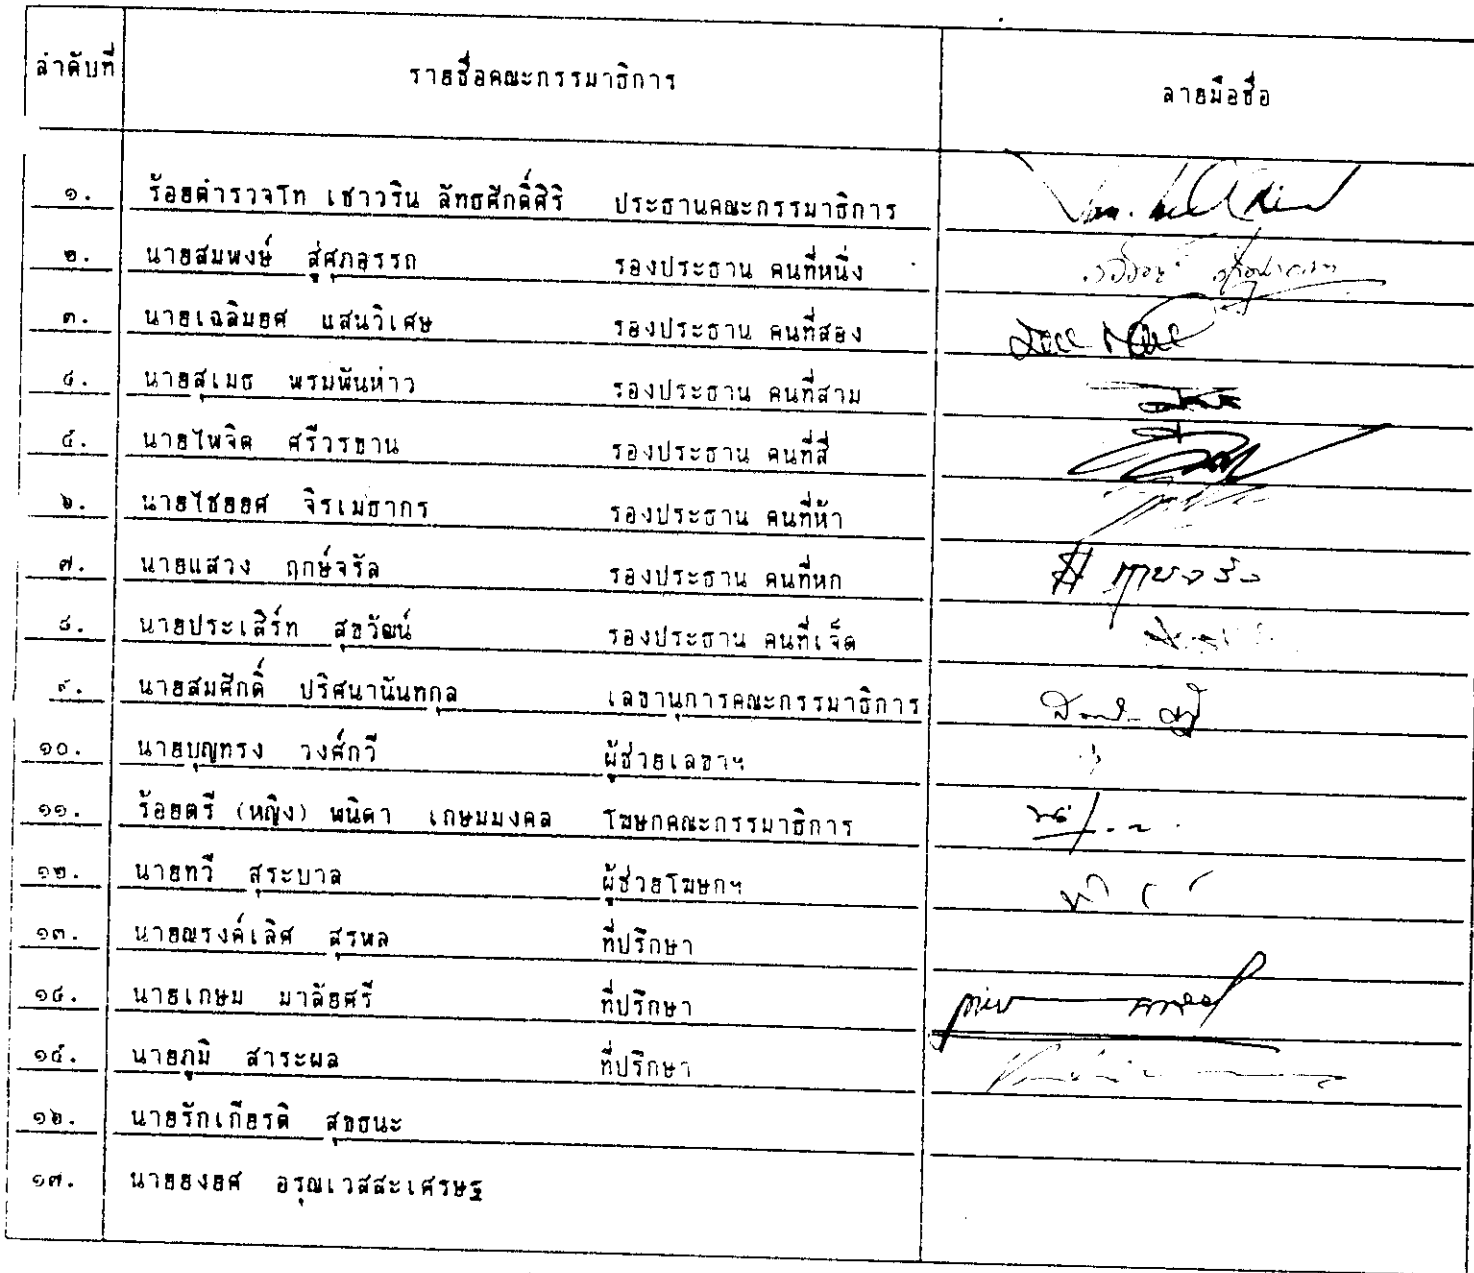 ลำดับที่ รายชื่อคณะกรรมาธิการ ลายมือชื่อ
๑. ร้อยตำรวจโท เชาวริน ลัทธศักดิ์ศิริ ประธานคณะกรรมาธิการ
๒. นายสมพงษ์ สู่ศุภอรรถ รองประธาน คนที่หนึ่ง
๓. นายเฉลิมยศ แสนวิเศษ รองประธาน คนที่สอง
๔. นายสุเมธ พรมพันห่าว รองประธาน คนที่สาม
๕. นายไพจิต ศรีวรขาน รองประธาน คนที่สี่
๖. นายไชยยศ จิรเมธากร รองประธาน คนที่ห้า
๗. นายแสวง ฤกษ์จรัล รองประธาน คนที่หก
๘. นายประเสิร์ท สุขวัฒน์ รองประธาน คนที่เจ็ด
๙. นายสมศักดิ์ ปริศนานันทกุล เลขานุการคณะกรรมาธิการ
๑๐. นายบุญทรง วงศ์กวี ผู้ช่วยเลขาฯ
๑๑. ร้อยตรี (หญิง) พนิดา เกษมมงคล โฆษกคณะกรรมาธิการ
๑๒. นายทวี สุระบาล ผู้ช่วยโฆษกฯ
๑๓. นายณรงค์เลิศ สุรพล ที่ปรึกษา
๑๔. นายเกษม มาลัยศรี ที่ปรึกษา
๑๕. นายภูมิ สาระผล ที่ปรึกษา
๑๖. นายรักเกียรติ สุขธนะ
๑๗. นายยงยศ อรุณเวสสะเศรษฐ